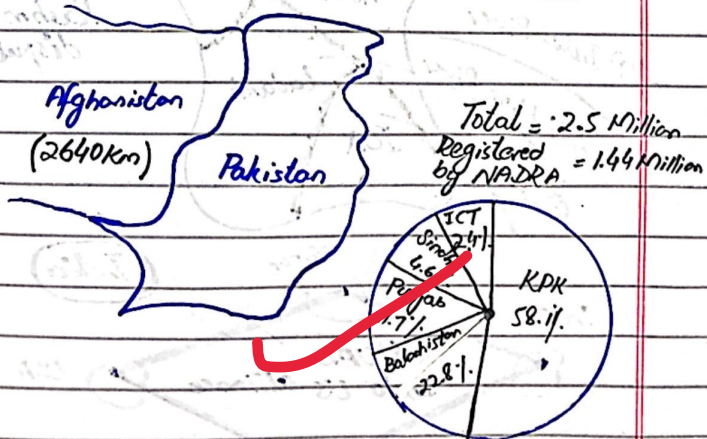 Afghanistan
(2640Km)
Pakistan
Total = 2.5 Million
Registered
by NADRA = 1.44 Million
ICT
2.4%
Sindh
4.6
Punjab
1.7%
Balochistan
22.8%
KPK
58.1%